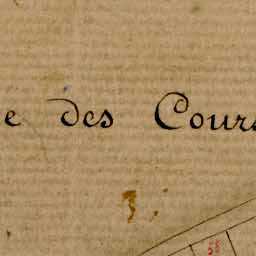 e des Cours
58